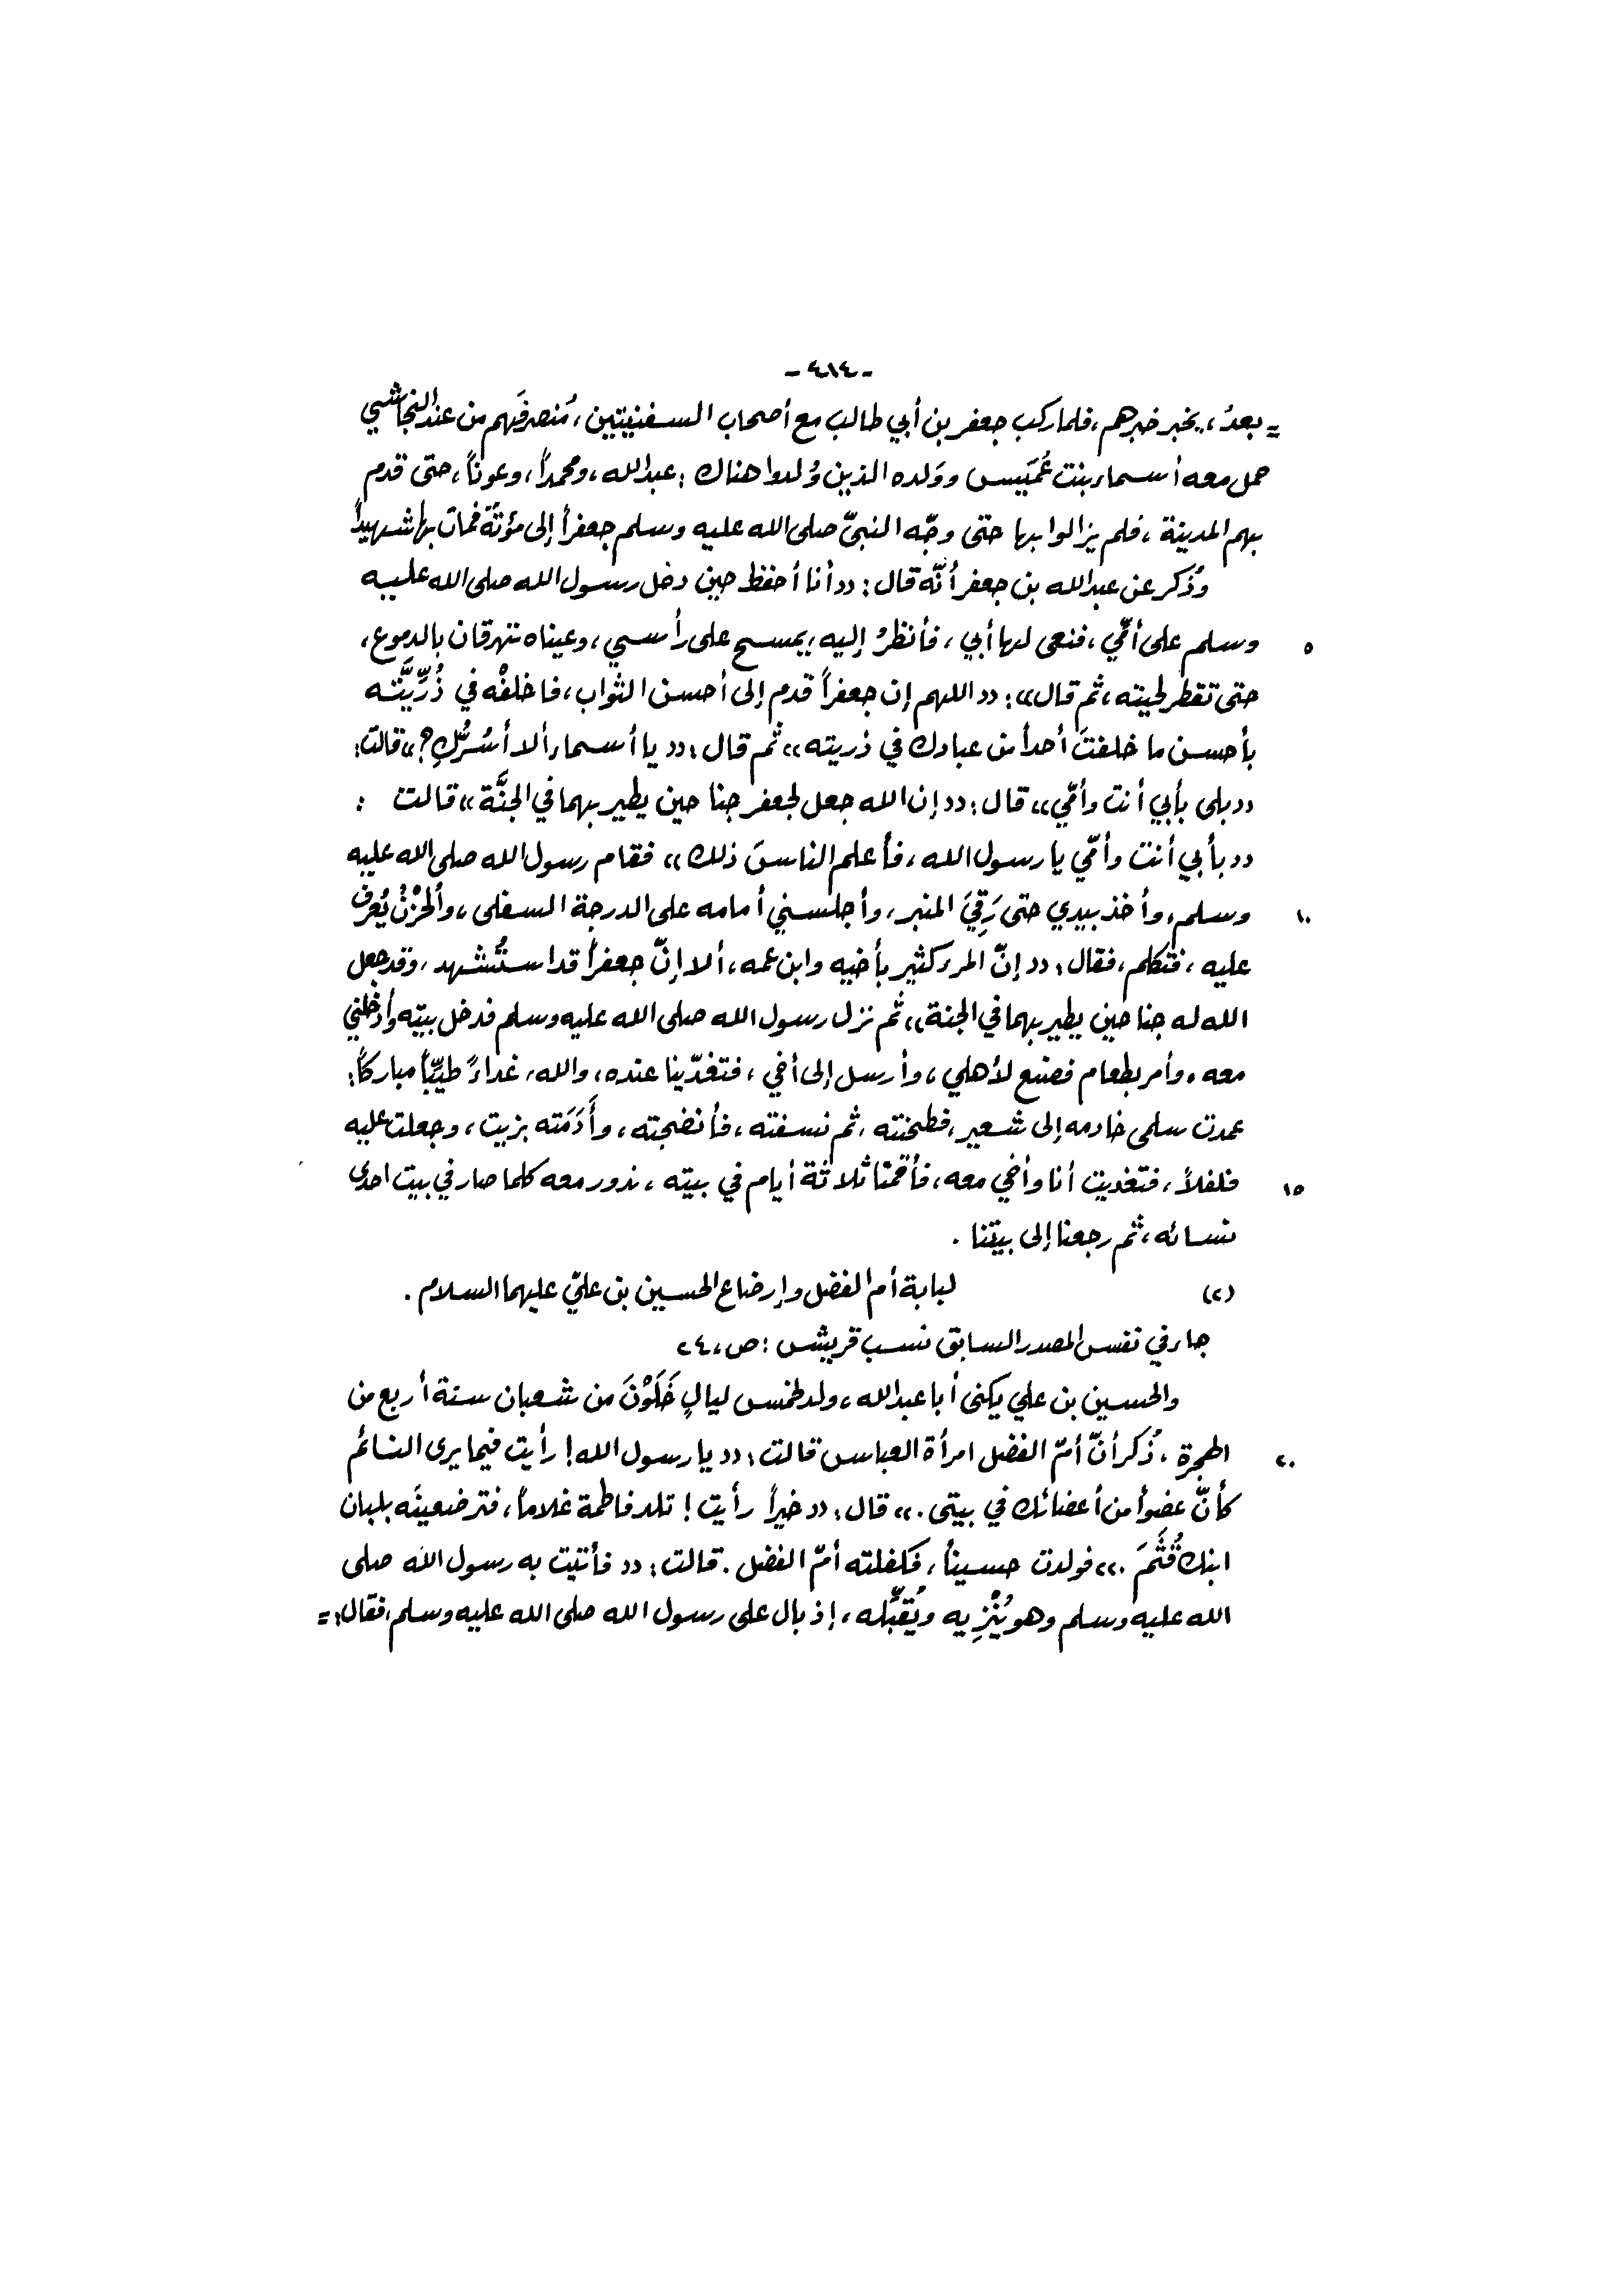 - ٤١٤ -
= بعدُ، بخبر خبرهم، فلما ركب جعفر بن أبي طالب مع أصحاب السفينتين، مُنصرفَهم من عند النجاشي
حمل معه أسماء بنت عُمَيس ووَلده الذين وُلدوا هناك : عبدالله، ومحمداً، وعوناً، حتى قدم
بهم المدينة، فلم يزالوا بها حتى وجّه النبيّ صلى الله عليه وسلم جعفراً إلى مؤتة فمات بها شهيداً
وذُكر عن عبدالله بن جعفر أنّه قال : «أنا أحفظ حين دخل رسول الله صلى الله عليه
٥ وسلم على أمّي، فنعى لها أبي، فأنظرُ إليه، يمسح على رأسي، وعيناه تهرقان بالدموع،
حتى تقطر لحيته، ثم قال» : «اللهم إن جعفراً قدم إلى أحسن الثواب، فاخلفْه في ذُرِّيَّته
بأحسن ما خلفتَ أحداً من عبادك في ذريته» ثم قال : «يا أسماء ألا أسُرُّكِ ؟» قالت :
«بلى بأبي أنت وأمّي» قال : «إن الله جعل لجعفر جناحين يطير بهما في الجنَّة» قالت :
«بأبي أنت وأمّي يا رسول الله، فأعلم الناسَ ذلك» فقام رسول الله صلى الله عليه
١٠ وسلم، وأخذ بيدي حتى رَقِيَ المنبر، وأجلسني أمامه على الدرجة السفلى، والحُزْنُ يُعرف
عليه، فتكلم، فقال : «إنّ المرء كثير بأخيه وابن عمه، ألا إنّ جعفراً قد استُشهد، وقد جعل
الله له جناحين يطير بهما في الجنة»، ثم نزل رسول الله صلى الله عليه وسلم فدخل بيته وأدخلني
معه، وأمر بطعام فصنع لأهلي، وأرسل إلى أخي، فتغدّينا عنده، والله، غداءً طيّباً مباركاً :
عمدت سلمى خادمه إلى شعير، فطحنته، ثم نسفته، فأنضجته، وأَدَمَته بزيت، وجعلت عليه
١٥ فلفلاً، فتغديت أنا وأخي معه، فأقمنا ثلاثة أيام في بيته، ندور معه كلما صار في بيت احدى
نسائه، ثم رجعنا إلى بيتنا .
(٢) لبابة أم الفضل وإرضاع الحسين بن عليّ عليهما السلام .
جاء في نفس المصدر السابق نسب قريش : ص، ٢٤
والحسين بن علي يكنى أبا عبدالله، ولد لخمس ليالٍ خَلَوْنَ من شعبان سنة أربع من
٢٠ الهجرة، ذُكر أنّ أمّ الفضل امرأة العباس قالت : «يا رسول الله ! رأيت فيما يرى النائم
كأنّ عضواً من أعضائك في بيتي .» قال : «خيراً رأيت ! تلد فاطمة غلاماً، فترضعينَه بلبان
ابنك قُثَمَ .» فولدت حسيناً، فكفلته أمّ الفضل . قالت : «فأتيت به رسول الله صلى
الله عليه وسلم وهو يُنْزِيه ويُقبِّله، إذ بال على رسول الله صلى الله عليه وسلم، فقال : =